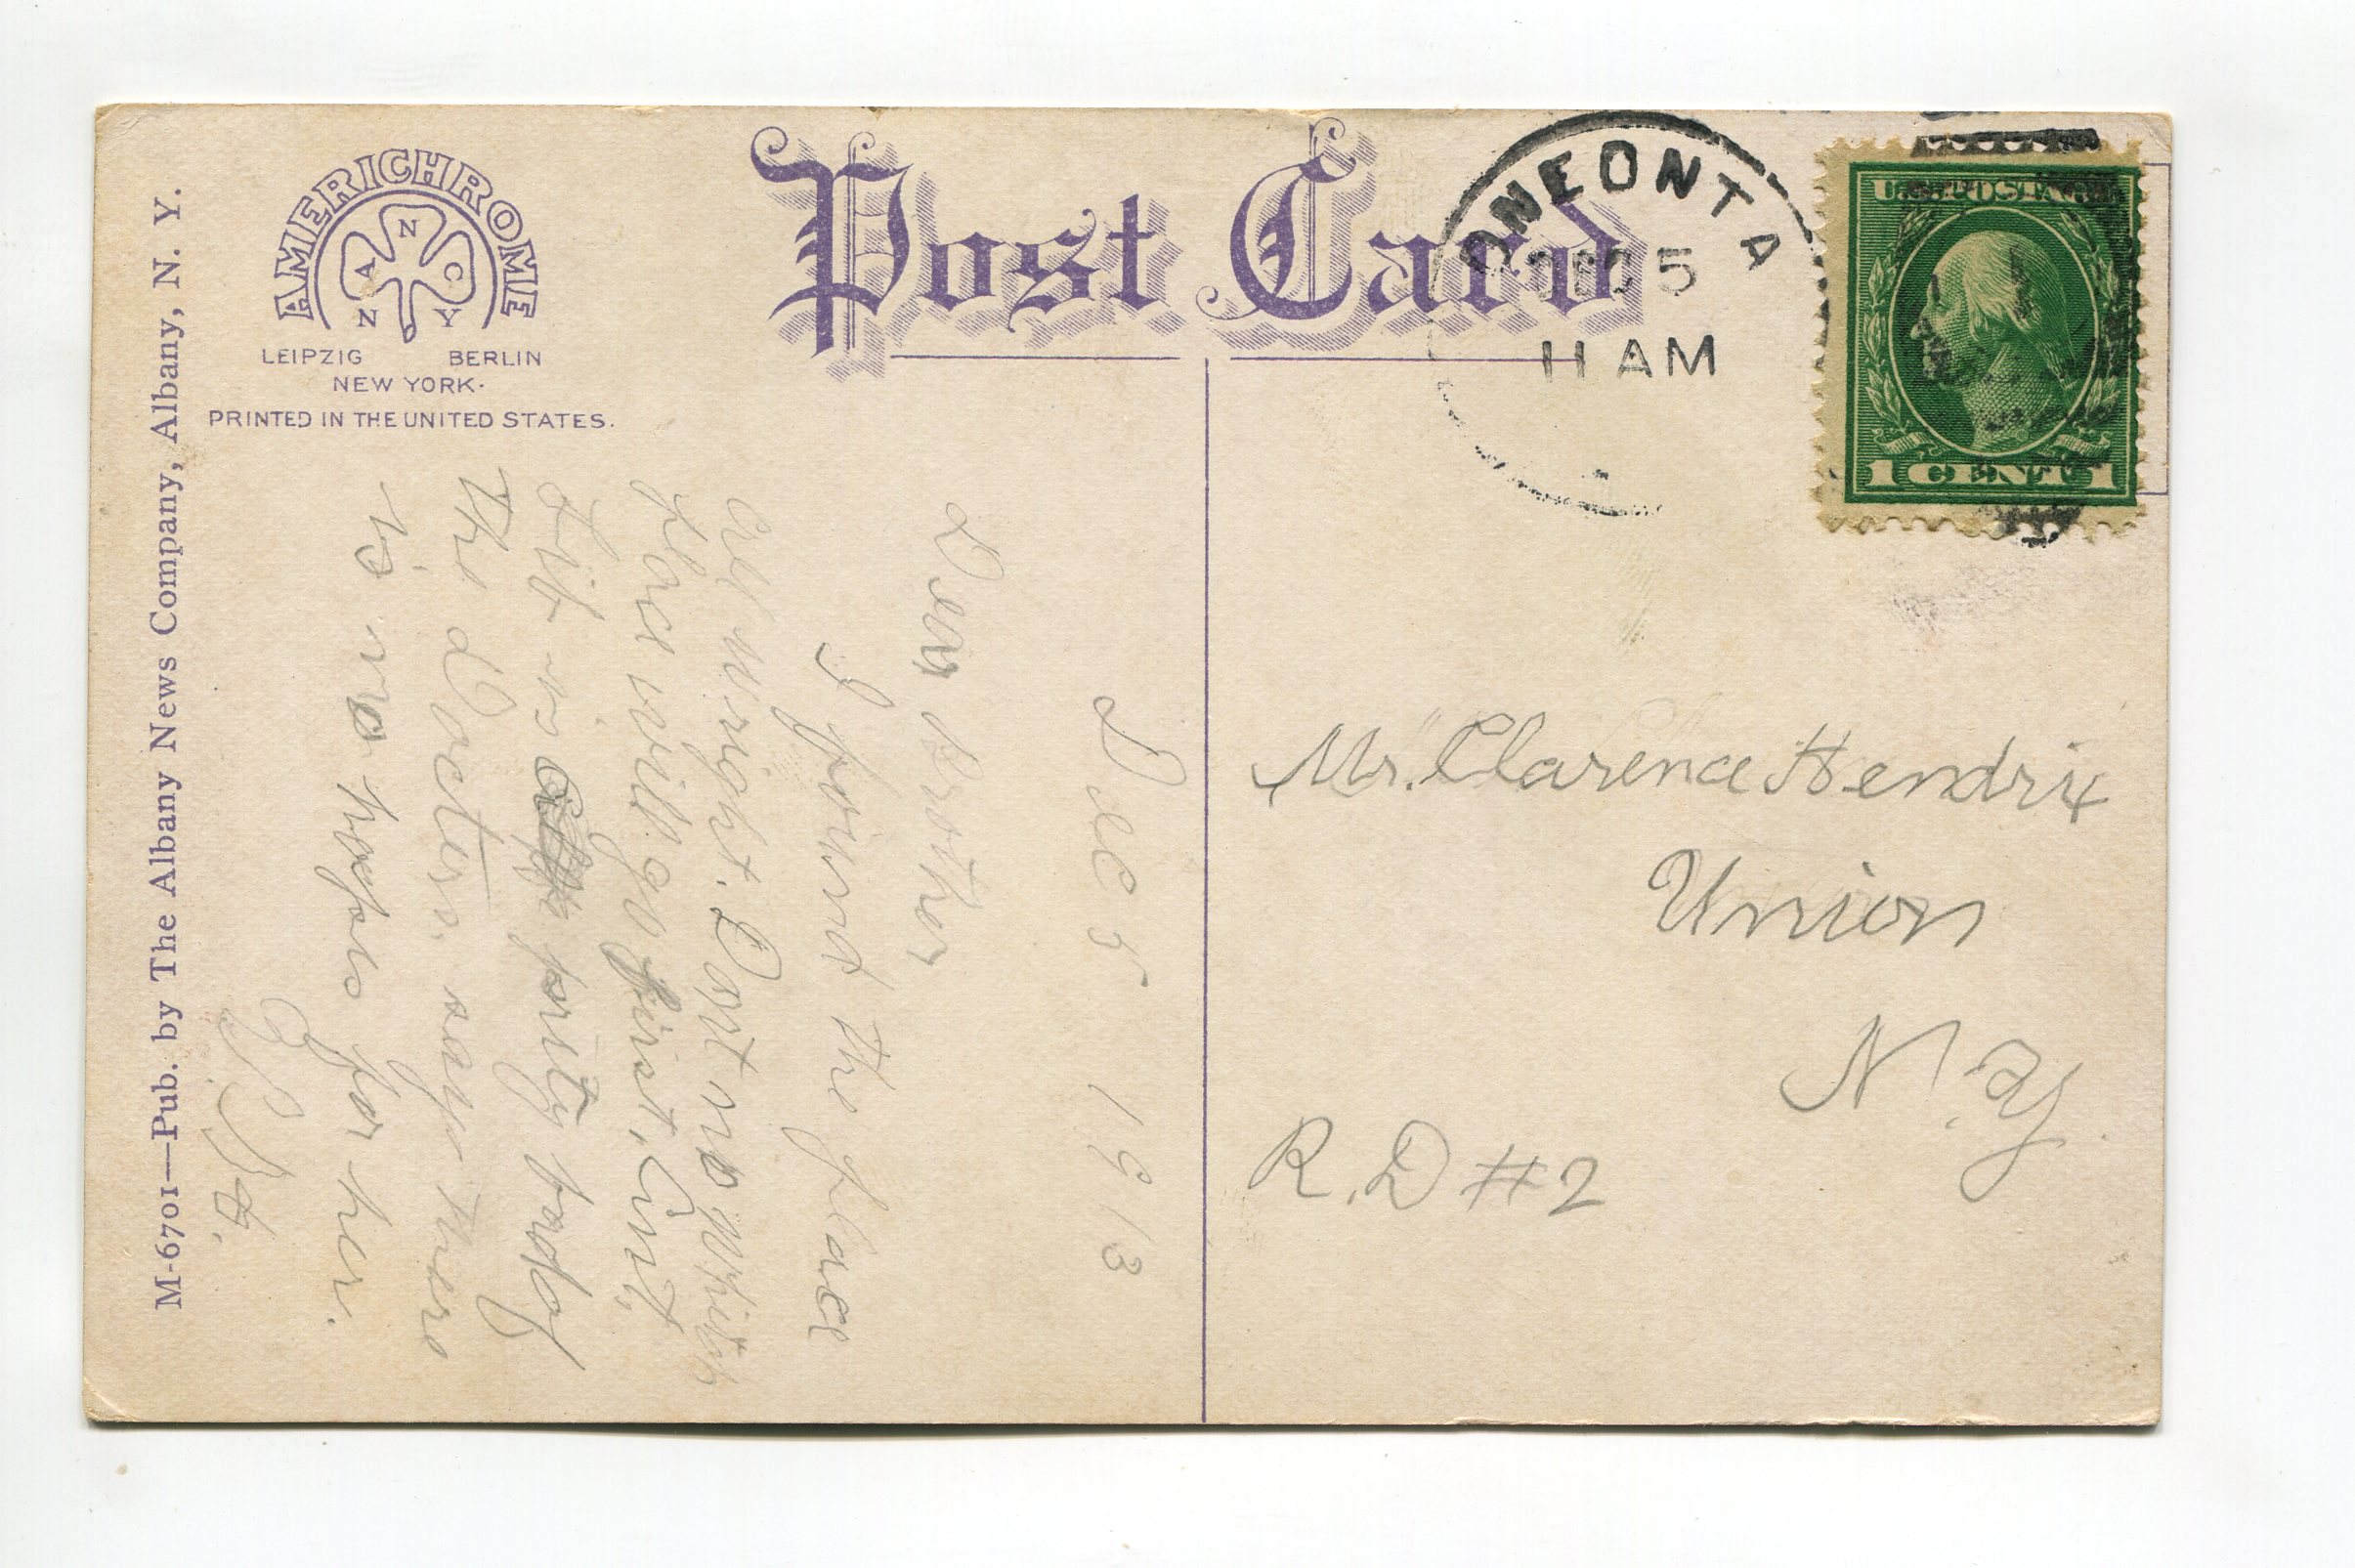 Post Card
AMERICHROME
A N C
N Y
LEIPZIG BERLIN
NEW YORK.
PRINTED IN THE UNITED STATES.
M-6701—Pub. by The Albany News Company, Albany, N. Y.
ONEONTA
DEC 5
11 AM
U.S. POSTAGE
1 CENT 1
Dec 5 1913
Dear Brother
I found the place
all wright. Dont no which
place will go first. Aint
Lib is prety bady
the Docters says there
is no hopes for her.
Mr. Clarence Hendrix
Union
N.Y.
R.D #2